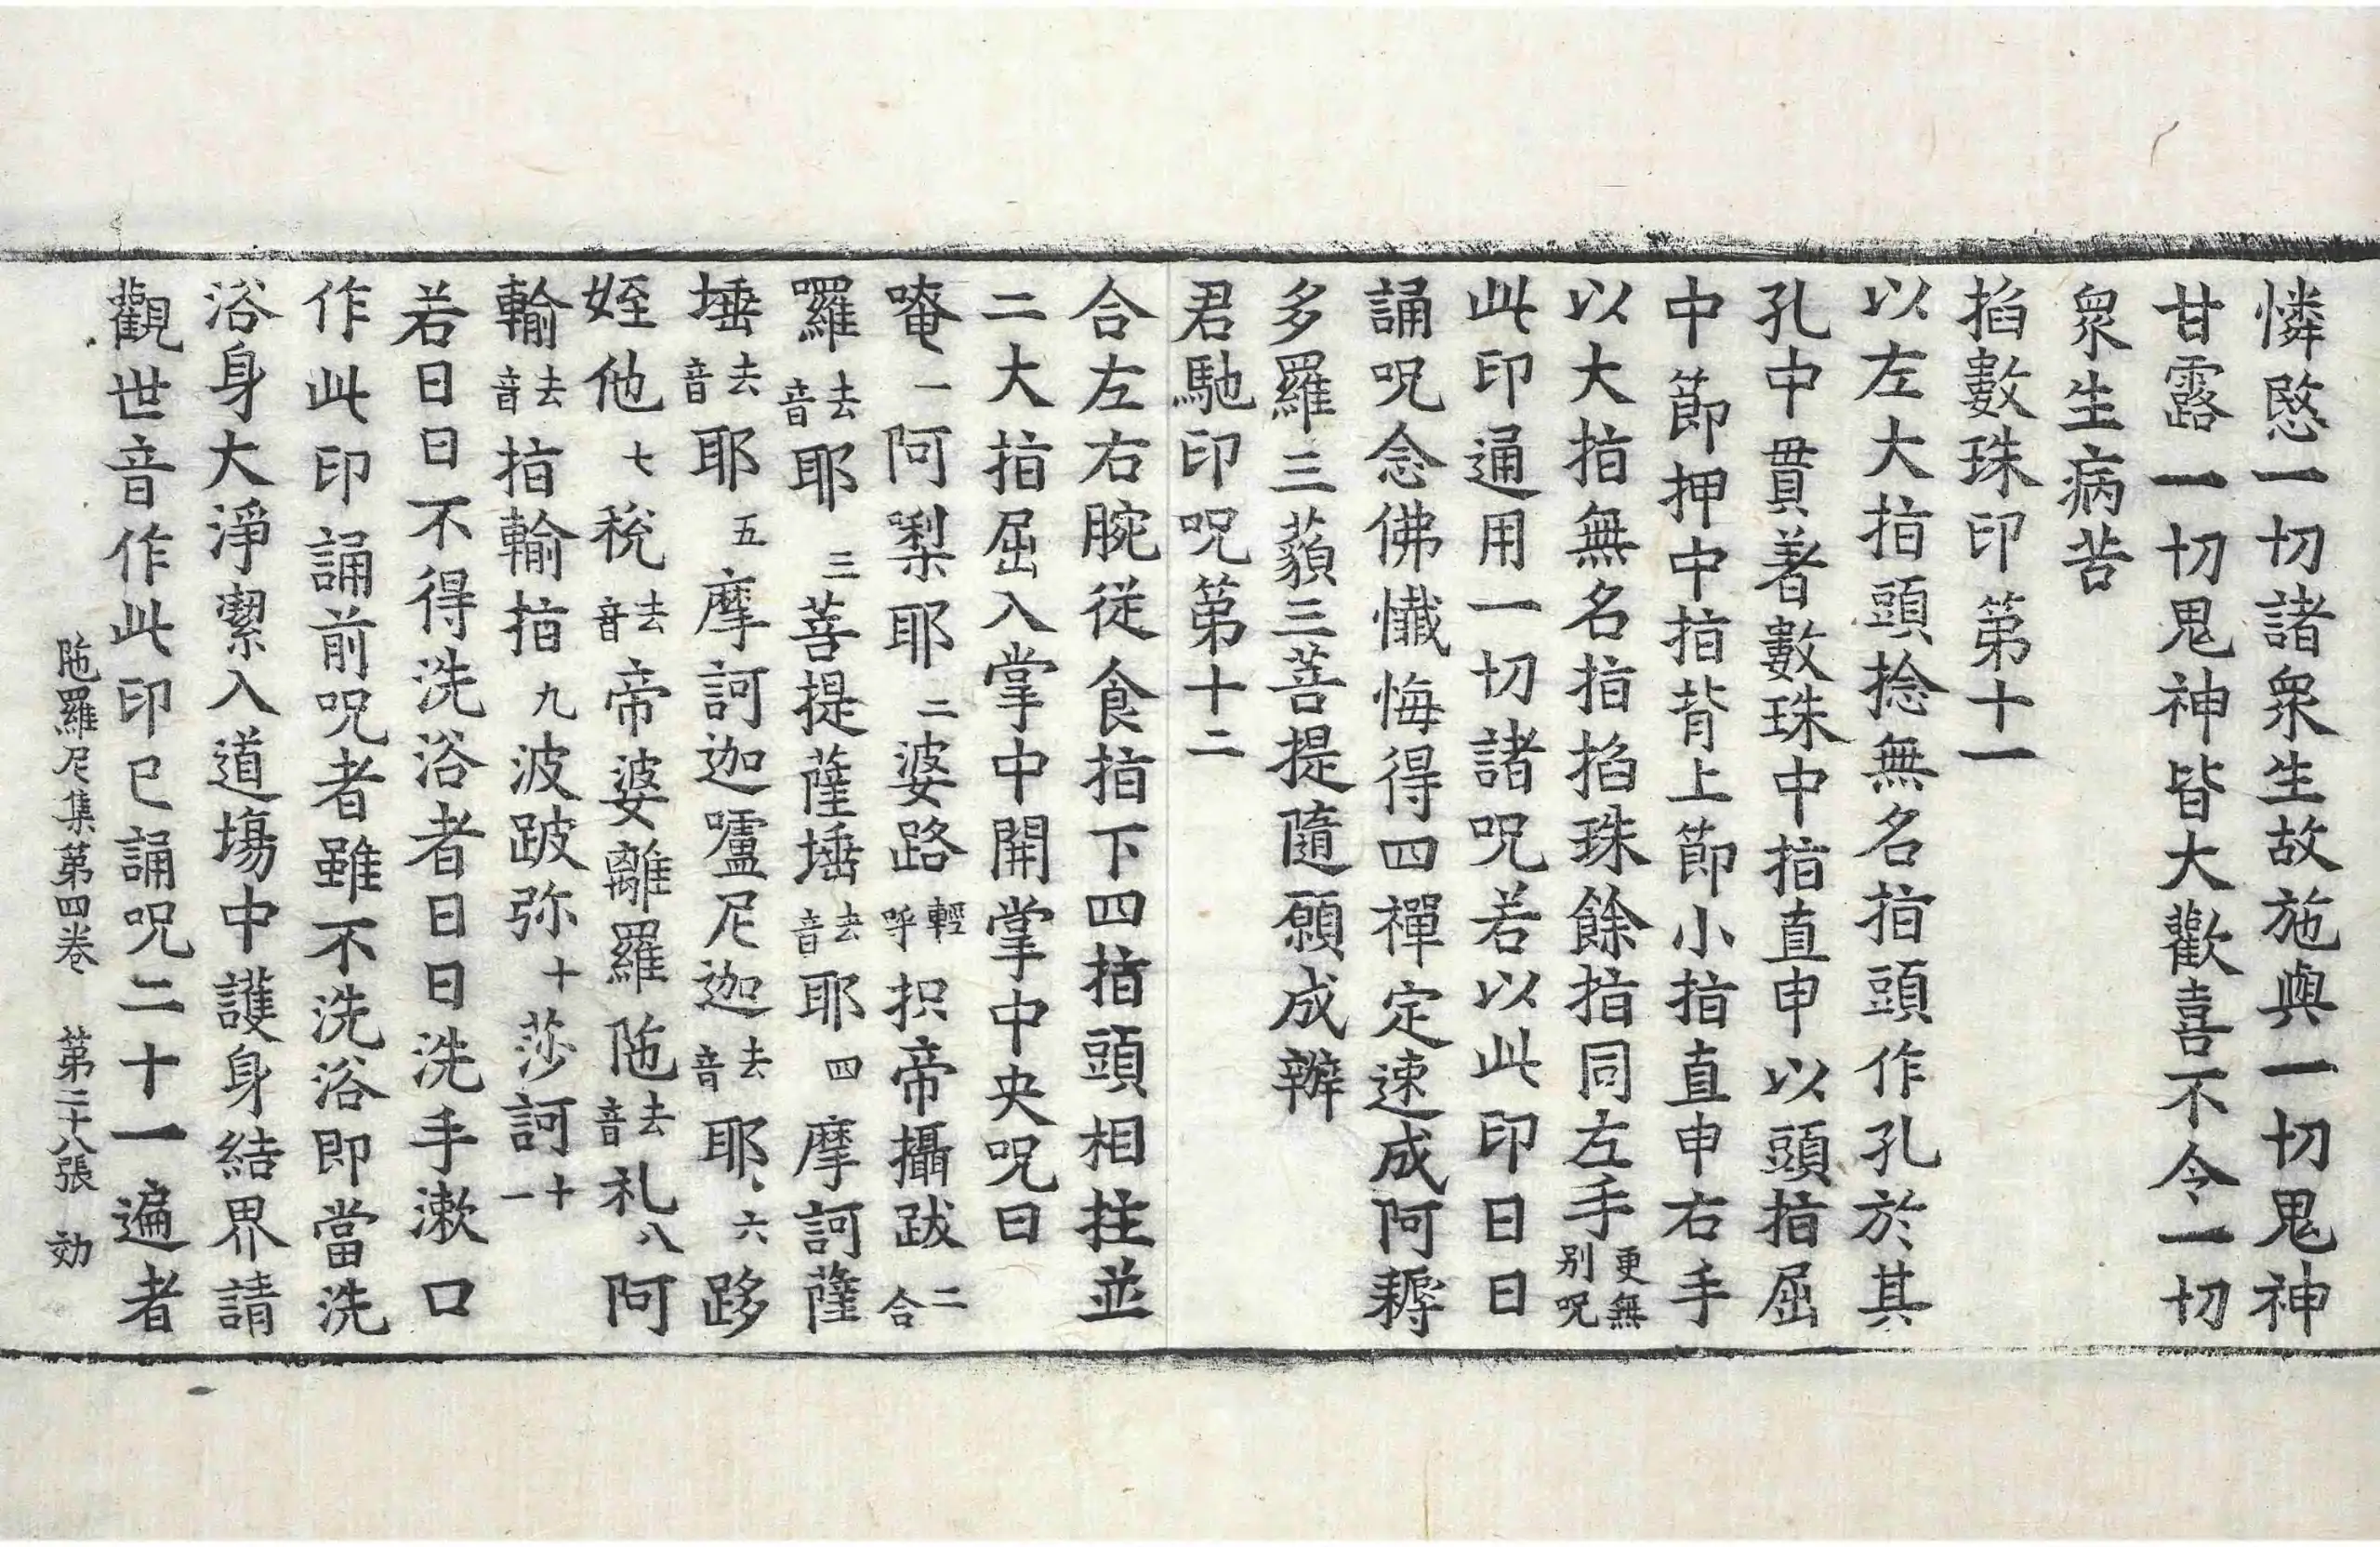 憐愍一切諸衆生故施與一切鬼神
甘露一切鬼神皆大歡喜不令一切
衆生病苦
掐數珠印第十一
以左大指頭捻無名指頭作孔於其
孔中貫著數珠中指直申以頭指屈
中節押中指背上節小指直申右手
以大指無名指掐珠餘指同左手更無別呪
此印通用一切諸呪若以此印日日
誦呪念佛懺悔得四禪定速成阿耨
多羅三藐三菩提隨願成辦
君馳印呪第十二
合左右腕從食指下四指頭相拄並
二大指屈入掌中開掌中央呪曰
唵一阿㗚耶二婆路輕呼抧帝攝跋二合
羅去音耶三菩提薩埵去音耶四摩訶薩
埵去音耶五摩訶迦嚧尼迦去音耶六跢
姪他七稅去音帝婆離羅陁去音札八阿
輸去音指輸指九波跛弥十莎訶十一
若日日不得洗浴者日日洗手漱口
作此印誦前呪者雖不洗浴即當洗
浴身大淨潔入道場中護身結界請
觀世音作此印已誦呪二十一遍者
陁羅尼集第四卷 第二十八張 効